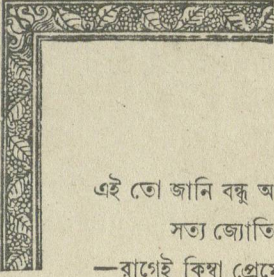 এই তো জানি বন্ধু
সত্য জ্যোতি
—রাগেই কিম্বা